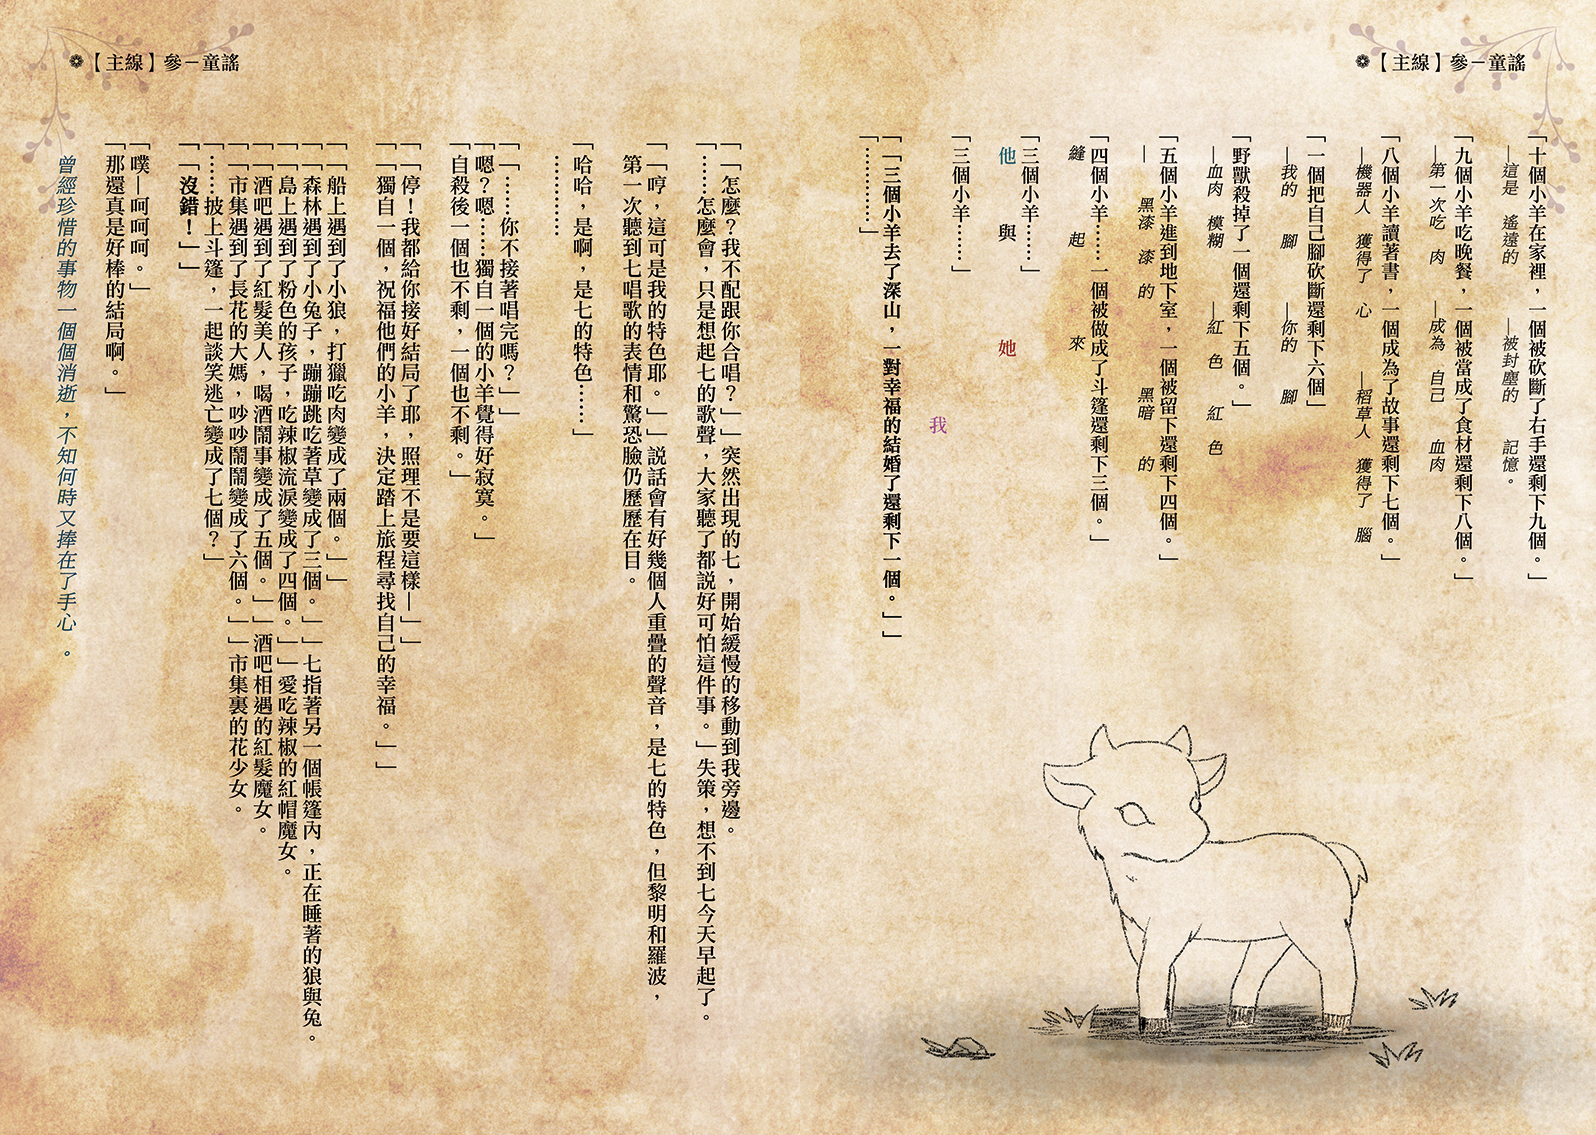 ❁【主線】參－童謠
「十個小羊在家裡，一個被砍斷了右手還剩下九個。」
—這是 遙遠的 —被封塵的 記憶。
「九個小羊吃晚餐，一個被當成了食材還剩下八個。」
—第一次吃 肉 —成為 自己 血肉
「八個小羊讀著書，一個成為了故事還剩下七個。」
—機器人 獲得了 心 —稻草人 獲得了 腦
「一個把自己腳砍斷還剩下六個」
—我的 腳 —你的 腳
「野獸殺掉了一個還剩下五個。」
—血肉 模糊 —紅 色 紅 色
「五個小羊進到地下室，一個被留下還剩下四個。」
— 黑漆 漆 的 黑暗 的
「四個小羊……一個被做成了斗篷還剩下三個。」
縫 起 來
「三個小羊……」
他 與 她
「三個小羊……」
我
「「三個小羊去了深山，一對幸福的結婚了還剩下一個。」」
「…………」
❁【主線】參－童謠
「「怎麼？我不配跟你合唱？」」突然出現的七，開始緩慢的移動到我旁邊。
「……怎麼會，只是想起七的歌聲，大家聽了都說好可怕這件事。」失策，想不到七今天早起了。
「「哼，這可是我的特色耶。」」說話會有好幾個人重疊的聲音，是七的特色，但黎明和羅波，
第一次聽到七唱歌的表情和驚恐臉仍歷歷在目。
「哈哈，是啊，是七的特色……」
…………
「「……你不接著唱完嗎？」」
「嗯？嗯……獨自一個的小羊覺得好寂寞。」
「自殺後一個也不剩，一個也不剩。」
「「停！我都給你接好結局了耶，照理不是要這樣—」」
「「獨自一個，祝福他們的小羊，決定踏上旅程尋找自己的幸福。」」
「「船上遇到了小狼，打獵吃肉變成了兩個。」」
「「森林遇到了小兔子，蹦蹦跳吃著草變成了三個。」」七指著另一個帳篷內，正在睡著的狼與兔。
「「島上遇到了粉色的孩子，吃辣椒流淚變成了四個。」」愛吃辣椒的紅帽魔女。
「「酒吧遇到了紅髮美人，喝酒鬧事變成了五個。」」酒吧相遇的紅髮魔女。
「「市集遇到了長花的大媽，吵吵鬧鬧變成了六個。」」市集裏的花少女。
「……披上斗篷，一起談笑逃亡變成了七個？」
「「沒錯！」」
「噗—呵呵呵。」
「那還真是好棒的結局啊。」
曾經珍惜的事物一個個消逝，不知何時又捧在了手心 。